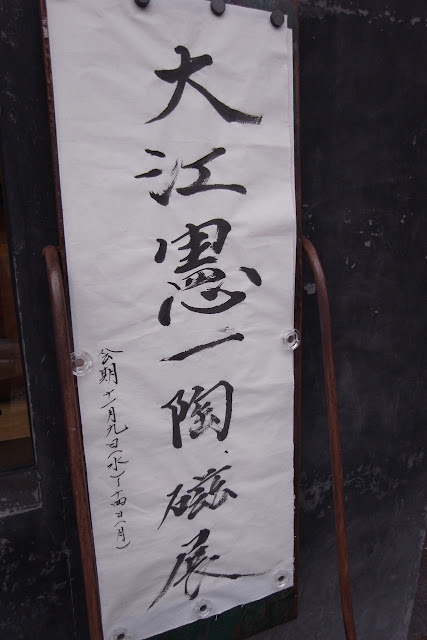 大江憲一陶、磁展
会期十一月九日(水)〜十四日(月)